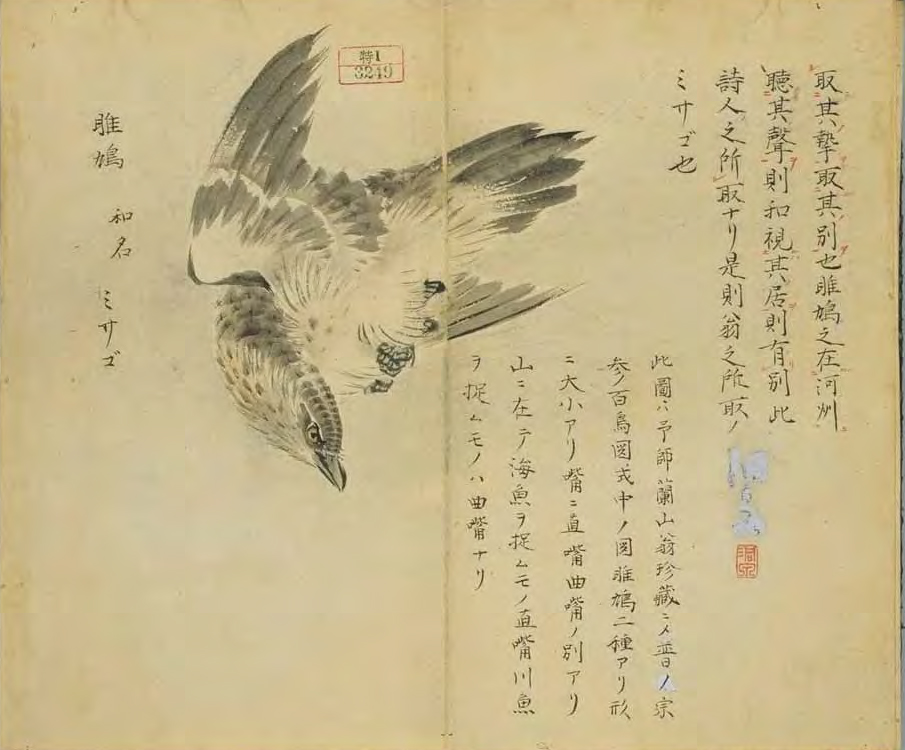 取其摯取其別也雎鳩之在河洲
聴其聲則和視其居則有別此
詩人之所取ナリ是則翁之所取ノ
ミサゴ也
此圖ハ予師蘭山翁珍藏ニ〆普ノ宗
参百鳥図式中ノ図雎鳩二種アリ形
ニ大小アリ嘴ニ直嘴曲嘴ノ別アリ
山ニ在テ海魚ヲ捉ムモノ直嘴川魚
ヲ捉ムモノハ曲嘴ナリ
特1
3249
雎鳩 和名 ミサゴ